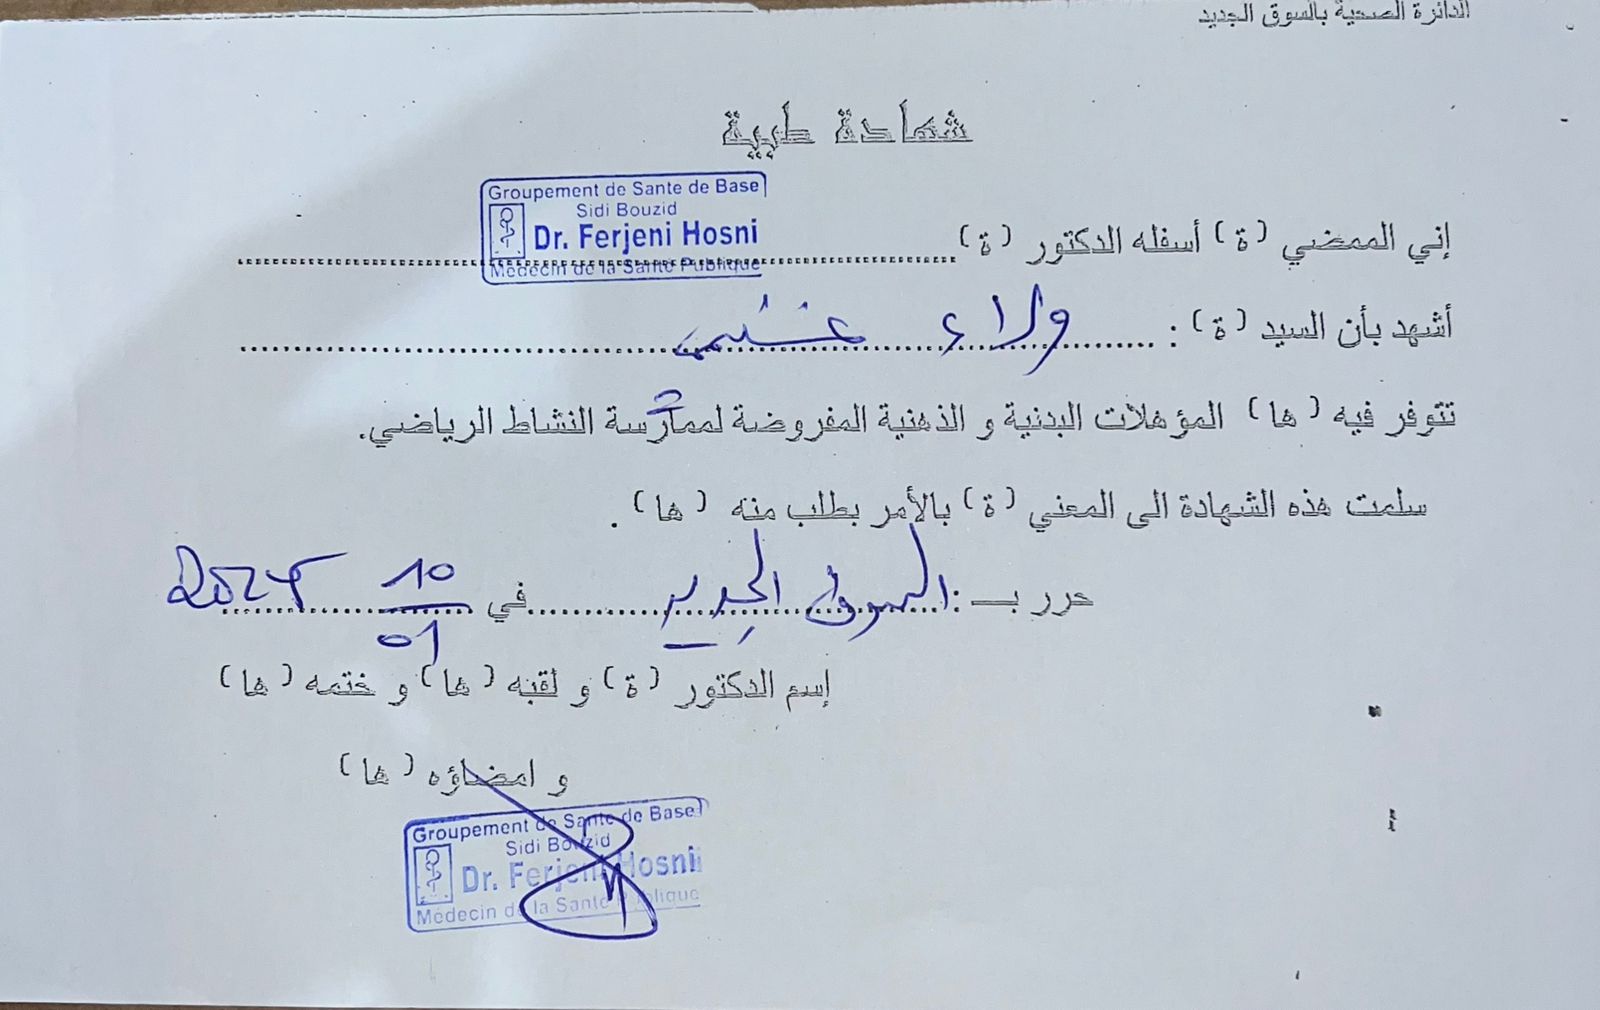 الدائرة الصحية بالسوق الجديد
شهادة طبية
Groupement de Sante de Base
Sidi Bouzid
Dr. Ferjeni Hosni
Médecin de la Santé Publique
إني الممضي (ة) أسفله الدكتور (ة)
أشهد بأن السيد (ة) : ولاء
تتوفر فيه (ها) المؤهلات البدنية و الذهنية المفروضة لممارسة النشاط الرياضي.
سلمت هذه الشهادة الى المعني (ة) بالأمر بطلب منه (ها) .
حرر بـ : السوق الجديد في 10 / 01
إسم الدكتور (ة) و لقبه (ها) و ختمه (ها)
و امضاؤه (ها)
Groupement de Sante de Base
Sidi Bouzid
Dr. Ferjeni Hosni
Médecin de la Santé Publique